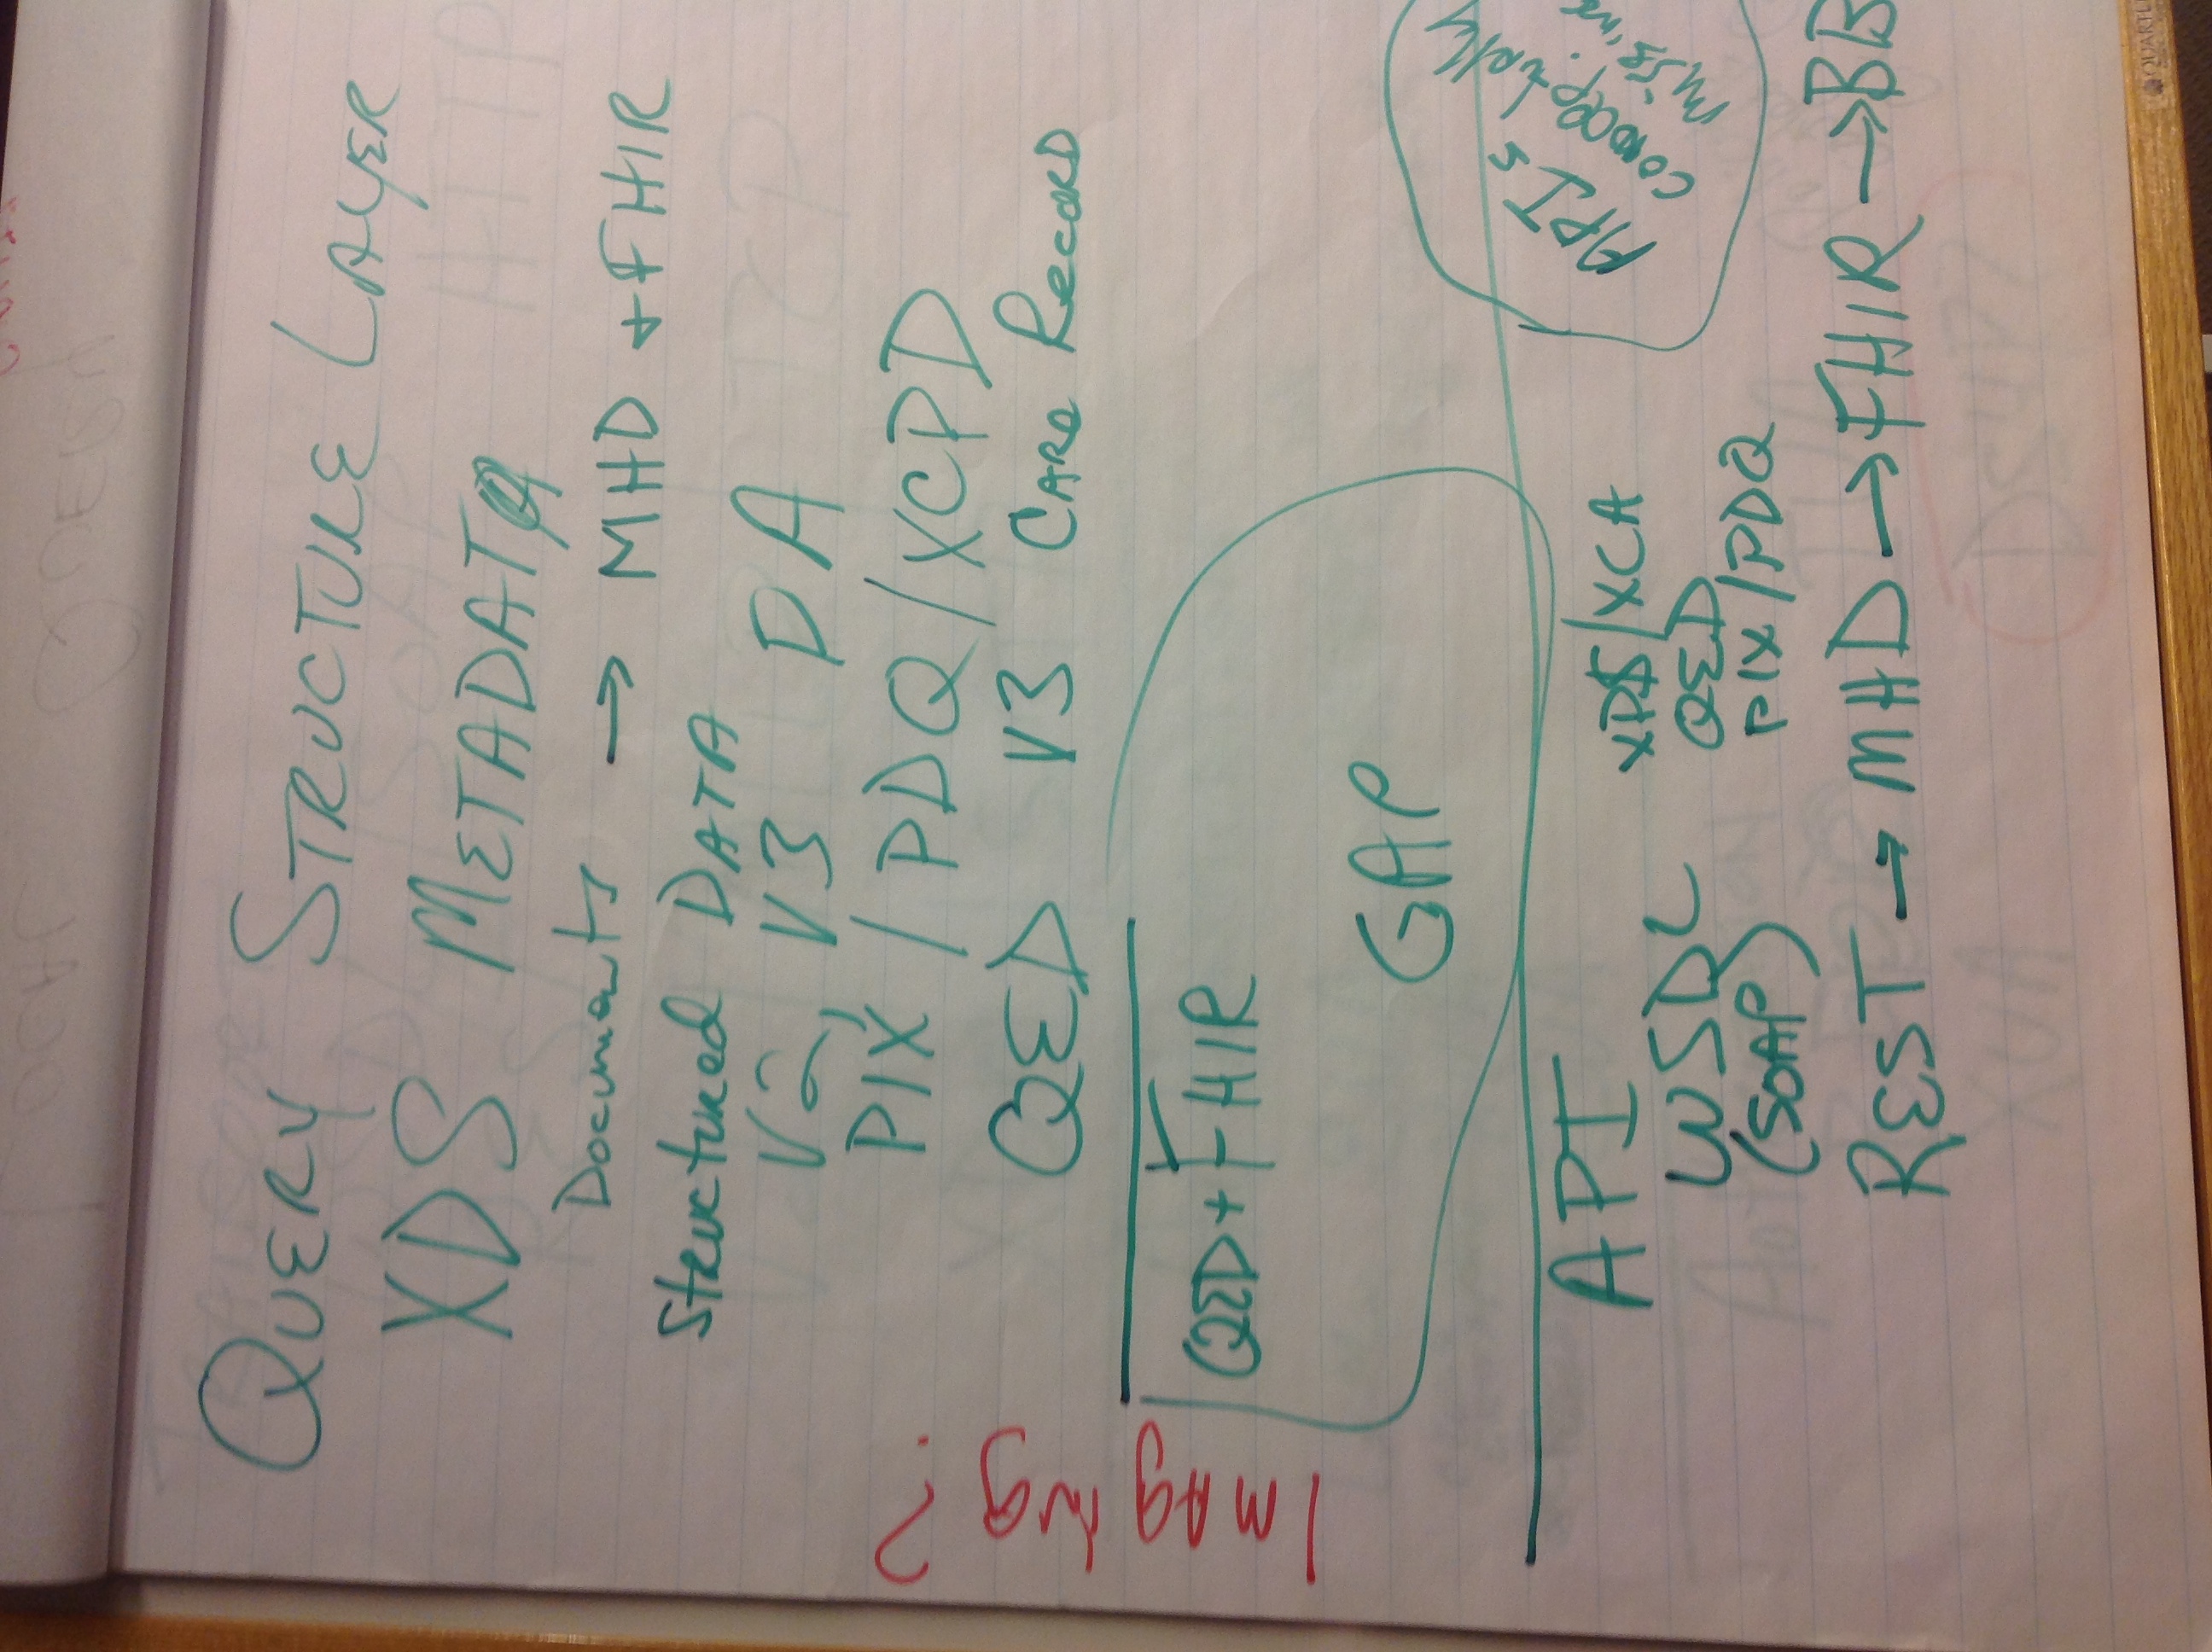 QUERY STRUCTURE LAYER
XDS METADATA
Documents → MHD + FHIR
Structured DATA
V2, V3 DA
PIX / PDQ / XCPD
QED V3 CARE RECORD
QED + FHIR
GAP
Imaging?
API
APIs
conceptually
WSDL
(SOAP)
XDS/XCA
QED
PIX/PDQ
REST → MHD → FHIR → BB